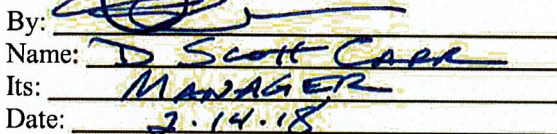 By:
Name: D SCOTT CARR
Its: MANAGER
Date: 2.14.18